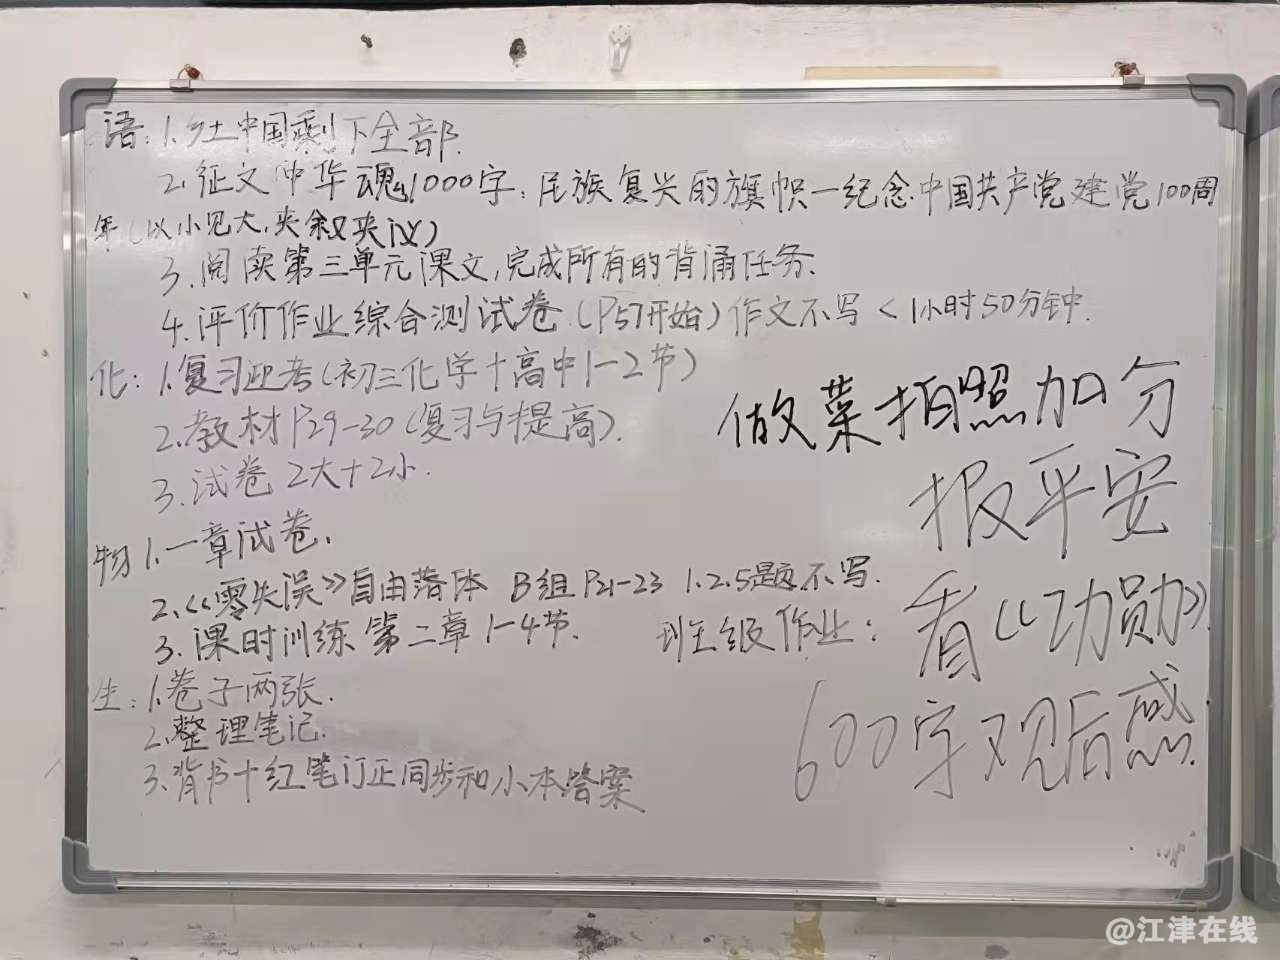 语:1.乡土中国剩下全部
2.征文中华魂1000字:民族复兴的旗帜—纪念中国共产党建党100周
年(以小见大,夹叙夹议)
3.阅读第三单元课文,完成所有的背诵任务.
4.评价作业综合测试卷(P57开始)作文不写<1小时50分钟.
化:1.复习迎考(初三化学+高中1-2节)
2.教材P29-30(复习与提高).
3.试卷2大+2小.
做菜拍照加分
报平安
物1.一章试卷.
2.《零失误》自由落体 B组P21-23 1.2.5题不写.
3.课时训练第二章1-4节.
班级作业:看《功勋》
600字观后感
生:1.卷子两张.
2.整理笔记.
3.背书+红笔订正同步和小本答案
@江津在线